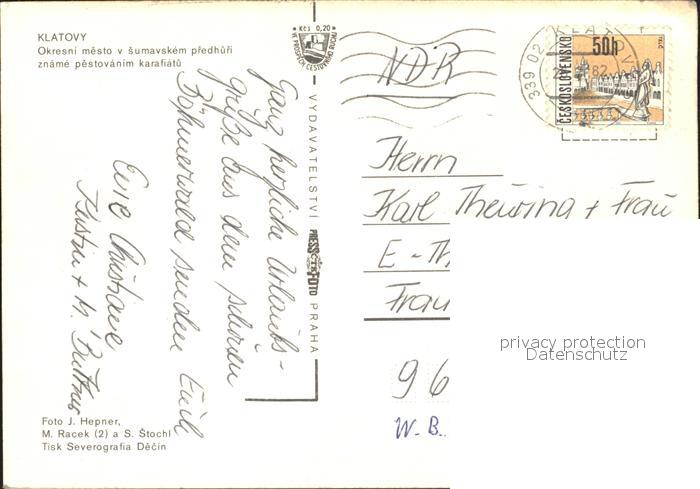 KLATOVY
Okresní město v šumavském předhůří
známé pěstováním karafiátů
Ganz herzliche Urlaubs-
grüße aus dem schönen
Böhmerwald senden Euch
Eure Christiane
+ M. Büttner
Foto J. Hepner,
M. Racek (2) a S. Štochl
Tisk Severografia Děčín
Kčs 0,20
VYDAVATELSTVÍ PRESSFOTO PRAHA
NDR
339 02 KLATOVY
82
50h
ČESKOSLOVENSKO
TELČ
Herrn
Karl Theurina + Frau
E-Th
Frau
96
W. B.
privacy protection
Datenschutz